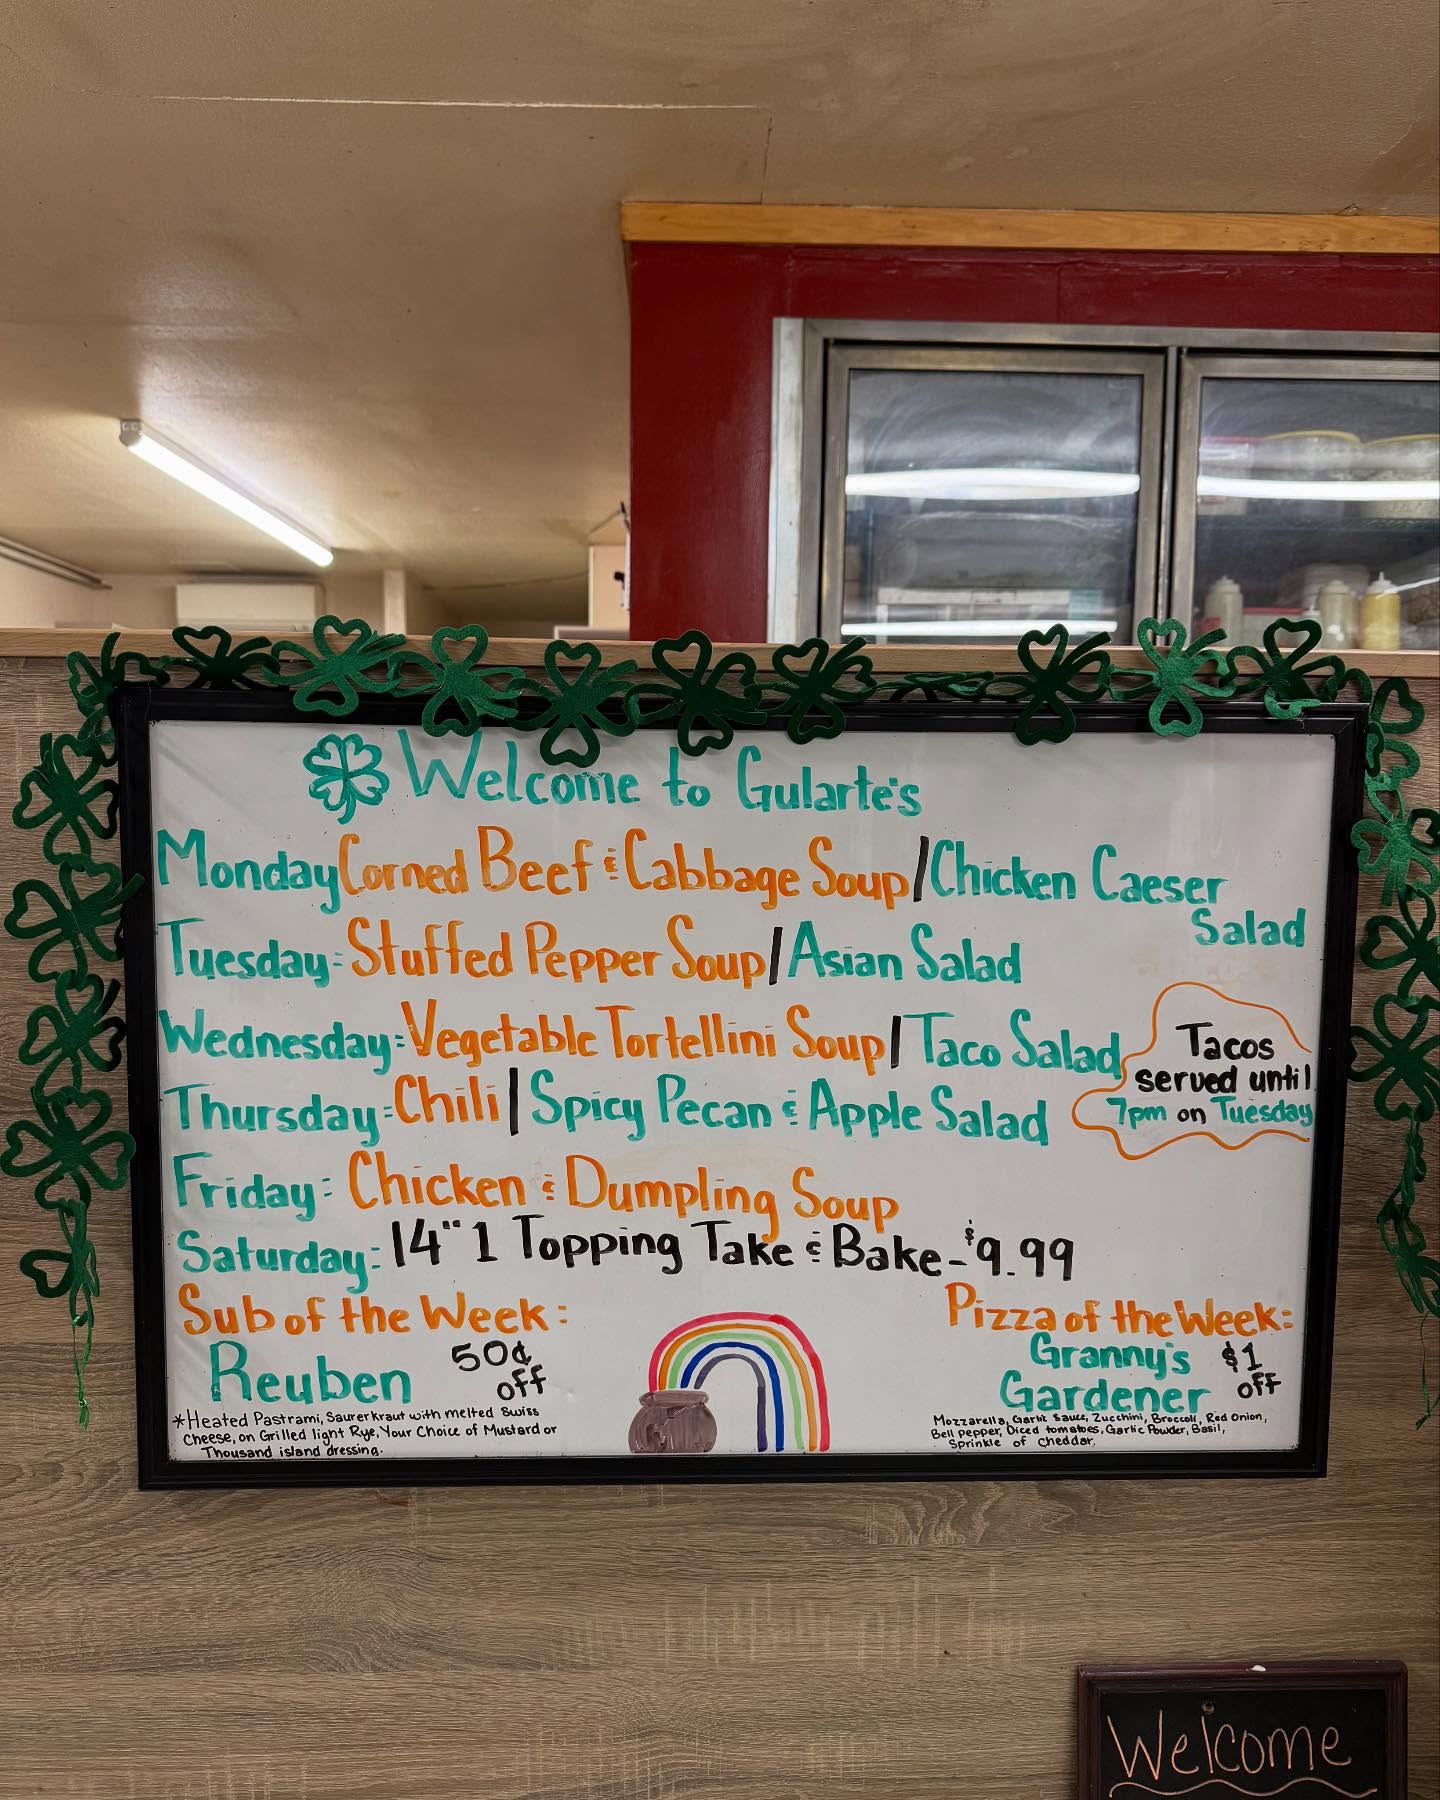 Welcome to Gularte's
Monday Corned Beef & Cabbage Soup/Chicken Caeser
Salad
Tuesday: Stuffed Pepper Soup/Asian Salad
Wednesday: Vegetable Tortellini Soup/Taco Salad
Tacos
served until
7pm on Tuesday
Thursday: Chili/Spicy Pecan & Apple Salad
Friday: Chicken & Dumpling Soup
Saturday: 14" 1 Topping Take & Bake - $9.99
Sub of the Week:
Reuben 50¢
off
*Heated Pastrami, Saurerkraut with melted Swiss
Cheese, on Grilled light Rye, Your Choice of Mustard or
Thousand island dressing.
Pizza of the Week:
Granny's $1
Gardener off
Mozzarella, Garlic Sauce, Zucchini, Broccoli, Red Onion,
Bell pepper, Diced tomatoes, Garlic Powder, Basil,
Sprinkle of Cheddar.
Welcome